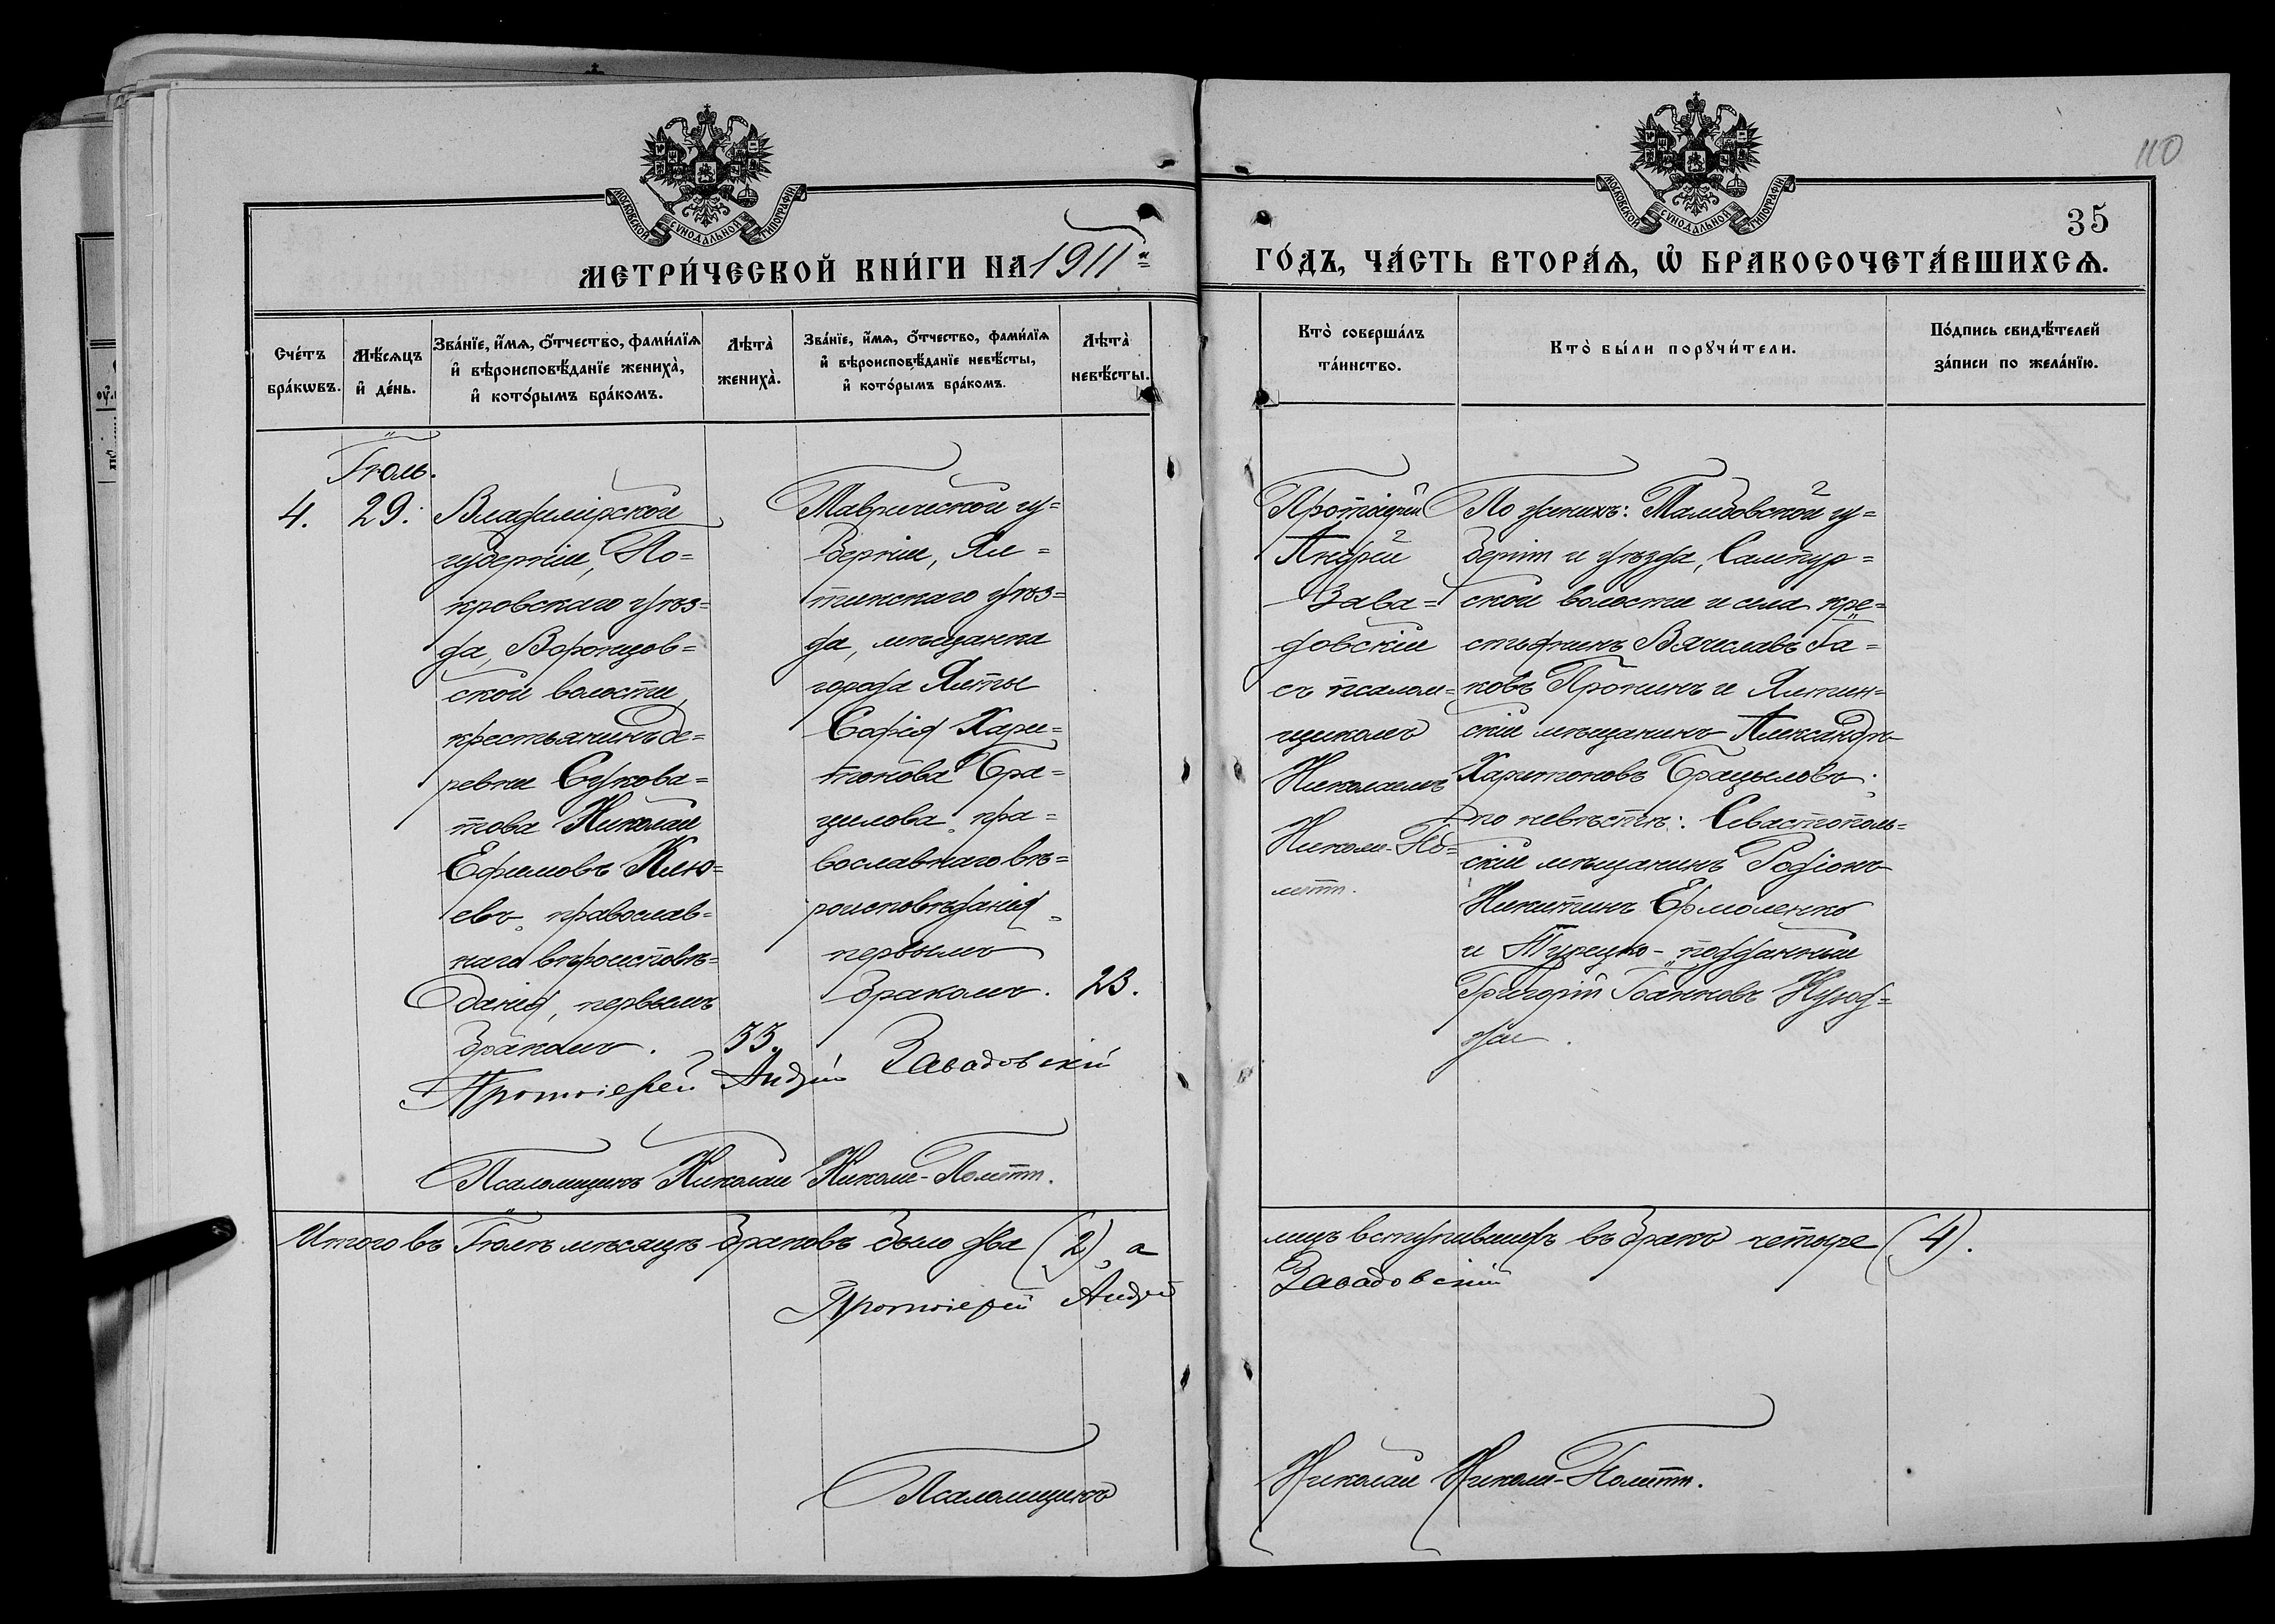 110
35
МОСКОВСКОЙ СѴНОДАЛЬНОЙ ТИПОГРАФІИ
МОСКОВСКОЙ СѴНОДАЛЬНОЙ ТИПОГРАФІИ
МЕТРИ́ЧЕСКОЙ КНИ́ГИ НА 1911й
ГО́ДЪ, ЧА́СТЬ ВТОРА́Ѧ, Ѡ҆ БРАКОСОЧЕТА́ВШИХСѦ.
Сче́тъ
бра́кѡвъ.
Мѣ́сѧцъ
и҆ де́нь.
Зва́нїе, и҆́мѧ, о҆́тчество, фами́лїѧ
и҆ вѣроисповѣ́данїе жениха̀,
и҆ кото́рымъ бра́комъ.
Лѣта̀
жениха̀.
Зва́нїе, и҆́мѧ, о҆́тчество, фами́лїѧ
и҆ вѣроисповѣ́данїе невѣ́сты,
и҆ кото́рымъ бра́комъ.
Лѣта̀
невѣ́сты.
Кто̀ соверша́лъ
та́инство.
Кто̀ бы́ли порꙋчи́тели.
По́дпись свидѣ́телей
за́писи по жела́нїю.
4.
Іюль.
29.
Владимірской
губерніи, По=
кровскаго уѣз=
да, Воронцов=
ской волости,
крестьянинъ де=
ревни Сукова=
това Николай
Ефимовъ Клю=
евъ, православ=
наго вѣроисповѣ=
данія, первымъ
бракомъ.
33.
Таврической гу=
берніи, Ял=
тинскаго уѣз=
да, мѣщанка
города Ялты
Софія Хари=
тонова Бра=
цылова, пра=
вославнаго вѣ=
роисповѣданія,
первымъ
бракомъ.
23.
Протоіерей Андрей Завадовскій
Псаломщикъ Николай Николи-Політи.
Протоіерей
Андрей
Зава=
довскій
съ псалом=
щикомъ
Николаемъ
Николи-По=
літи.
По женихѣ: Тамбовской гу=
берніи и уѣзда, Сампур=
ской волости и села кре=
стьянинъ Вячеславъ Іа=
ковъ Пронинъ и Ялтин=
скій мѣщанинъ Александръ
Харитоновъ Брацыловъ;
по невѣстѣ: Севастополь=
скій мѣщанинъ Родіонъ
Никитинъ Ермоленко
и Турецко-подданный
Григорій Іоанновъ
Итого въ Іюлѣ мѣсяцѣ браковъ было два (2), а
лицъ вступившихъ въ бракъ четыре (4).
Протоіерей Андрей
Завадовскій
Псаломщикъ
Николай Николи-Політи.